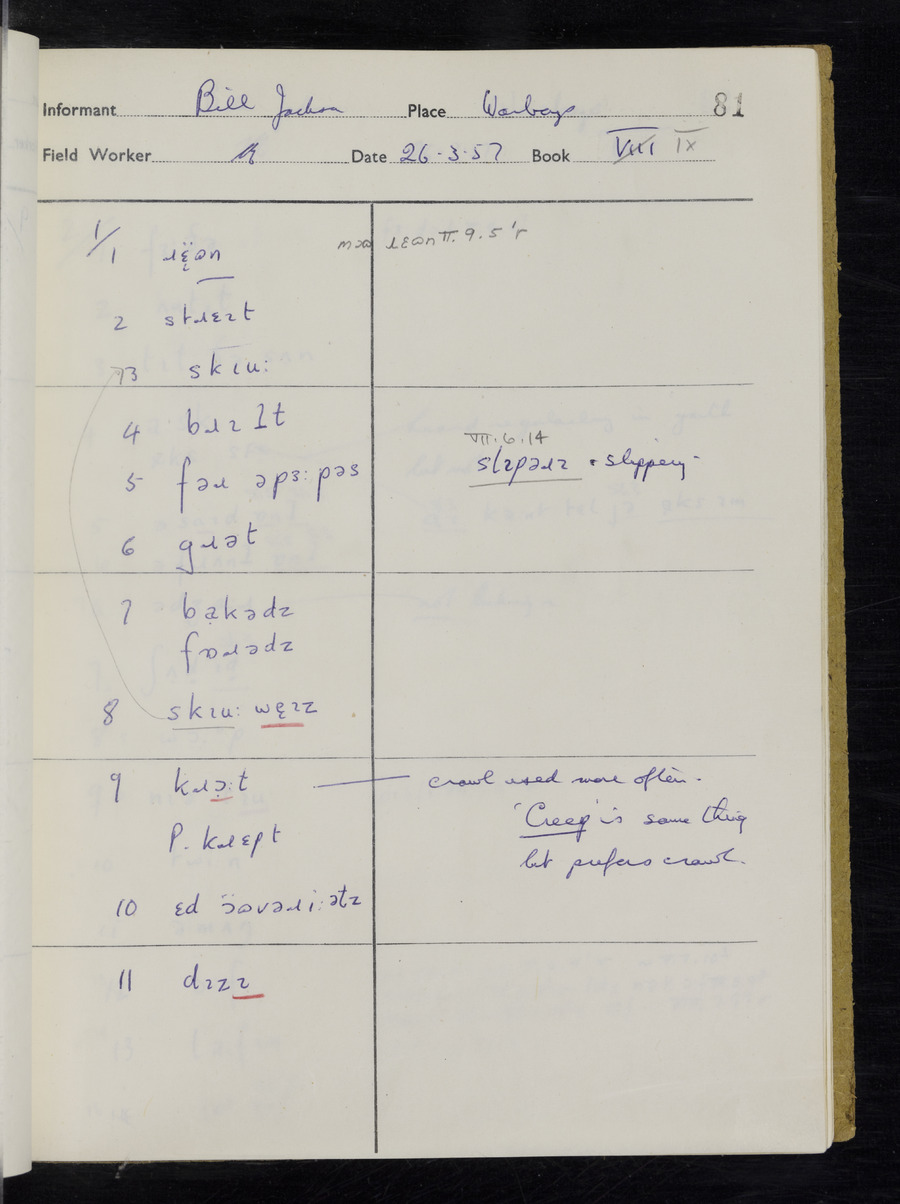 Informant Bill Jackson Place Warboys 81
Field Worker Date 26·3·57 Book V̶I̶I̶I̶ IX
1/1 ɹɛ̈ən ɹɛən II. 9. 5 'r
2 stɹɛɪt
3 skɪu:
4 bɪlt
VII. 6. 14
5 fəɹ əpɜ:pəs slɪpəɹɪ + slippery -
6 gɹət
7 bakədz
fɒɹədz
8 skɪu: wɛɪz
9 kɹɔ:t crawl used more often.
P. kɹɛpt 'Creep' is same thing
but prefers crawl.
10 ɛd ɔ̈ʊvəɹi:ətz
11 dɪzɪ